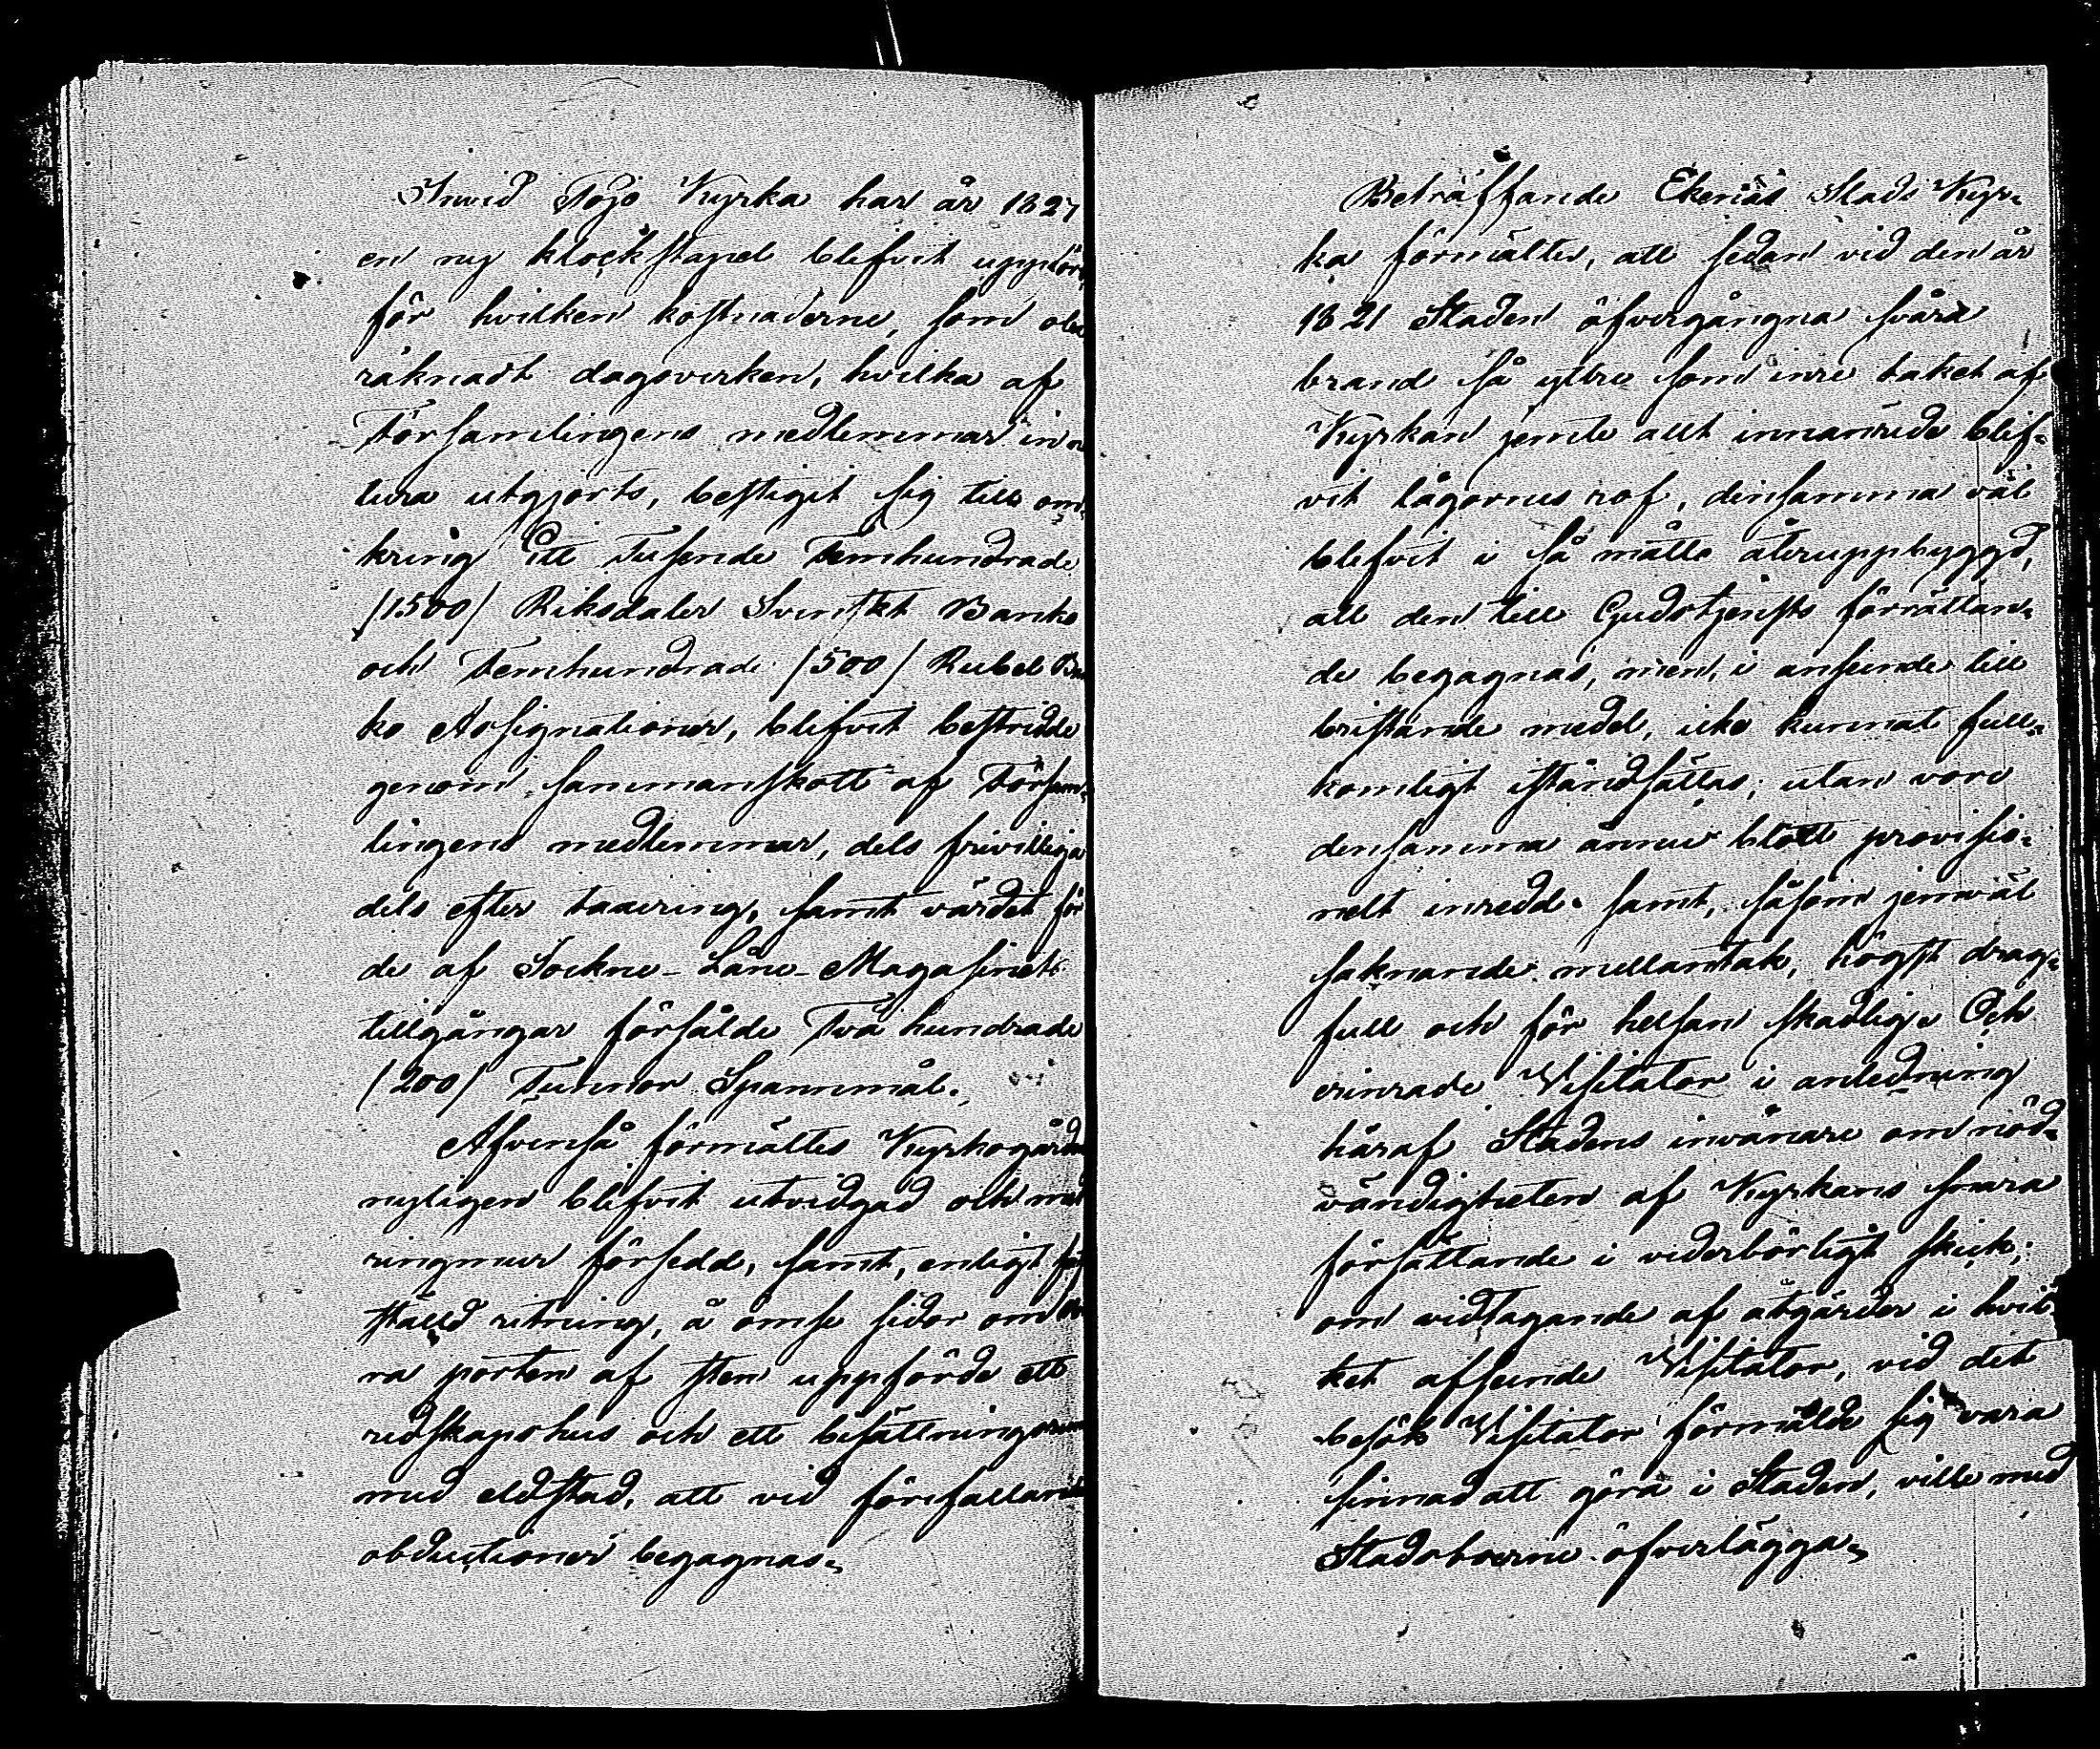 Invid Pojo Kyrka har år 1827
en ny klockstapel blifvit uppförd,
för hvilken kostnaderne, som obe
räknadt dagsverken, hvilka af
Församlingens medlemmar in na
tura utgjorts, bestiget sig till om,
kring Ett Tusende Femhundrade
/1500/ Riksdaler Svenskt Banko
och Femhundrade /500/ Rubel Ban
ko Assignationer, blifvit bestridde
genom sammanskott af Försam,
lingens medlemmar, dels frivilliga
dels efter taxering, samt värdet för
de af Sockne-Låne-Magasinets
tillgångar försålde Två hundrade
/200/ Tunnor Spannmål.
Äfvenså förmältes Kyrkogården
nyligen blifvit utvidgad och med
ringmur försedd, samt, enligt fast
ställd ritning, å ömse sidor om
ra porten af sten uppförde ett
redskapshus och ett besättningsrum
med eldstad, att vid förefallande
obductioner begagnas.
Beträffande Ekenäs Stads Kyr=
ka förmältes, att sedan vid den år
1821 Staden öfvergångna svåra
brand så yttre som inre taket af
Kyrkan jemte allt innanrede blif=
vit lågornes rof, densamma väl
blefvit i så måtto återuppbyggd,
att den till Gudstjensts förrättan=
de begagnas, men, i anseende till
bristande medel, icke kunnat full=
komligt iståndsättas; utan vore
densamma ännu blott provisio=
nelt inredd. samt, såsom jemväl
saknande mellantak, högst drag=
full och för helsan skadlig. Och
erinrade Visitator i anledning
häraf Stadens invånare om nöd=
vändigheten af Kyrkans snara
försättande i vederbörligt skick;
om vidtagande af åtgärder i hvil
ket afseende Visitator, vid det
besök Visitator förmälde sig vara
sinnad att göra i Staden, ville med
Stadsboerne öfverlägga.